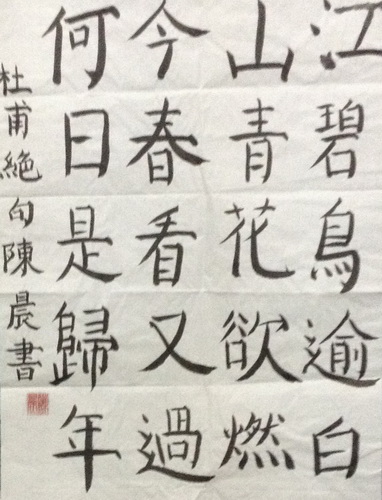 江碧鳥逾白
山青花欲燃
今春看又過
何日是歸年
杜甫絕句陳晨書